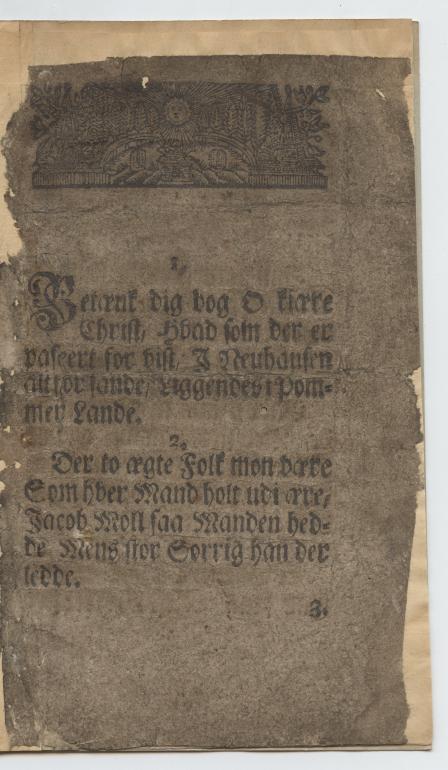 1.
Betænk dig dog O kiære
Christ, Hvad som der er
paseert for vist, I Neuhausen
alt for sande, Liggendes i Pom-
mer Lande.
2.
Der to ægte Folk mon være
Som hver Mand holt udi ære,
Jacob Moll saa Manden hed-
de Mens stor Sorrig han der
ledde.
3.